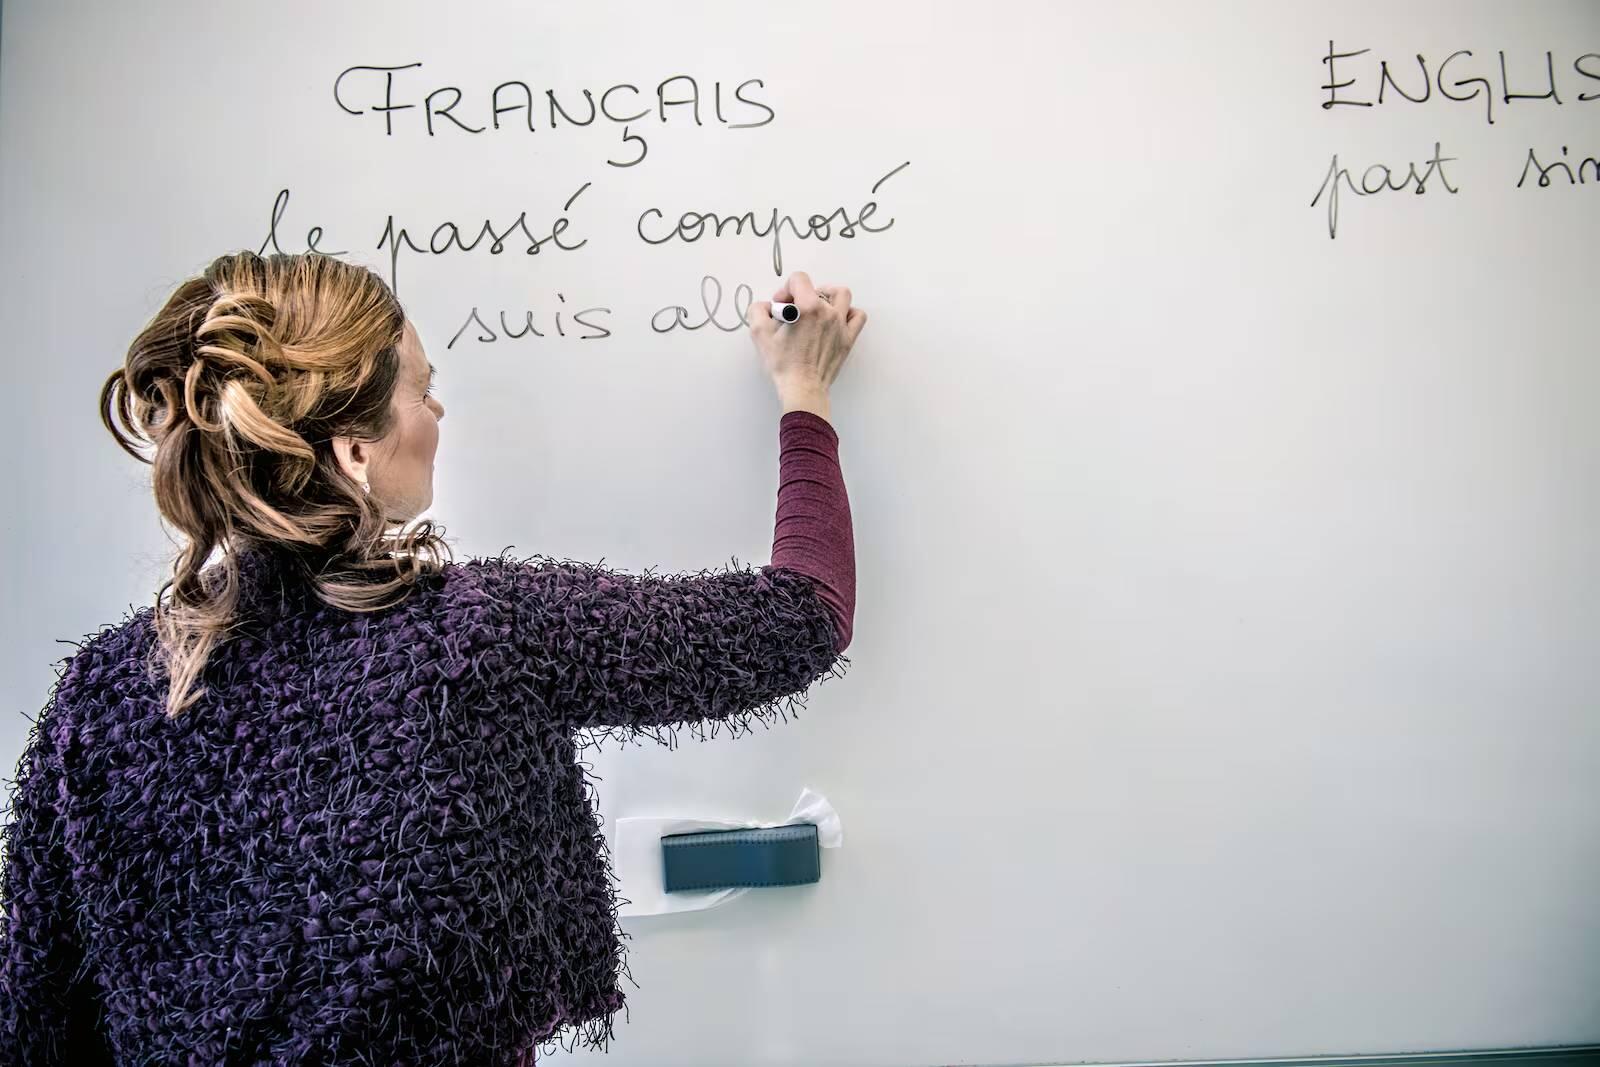 FRANÇAIS
le passé composé
suis all
ENGLIS
past sim